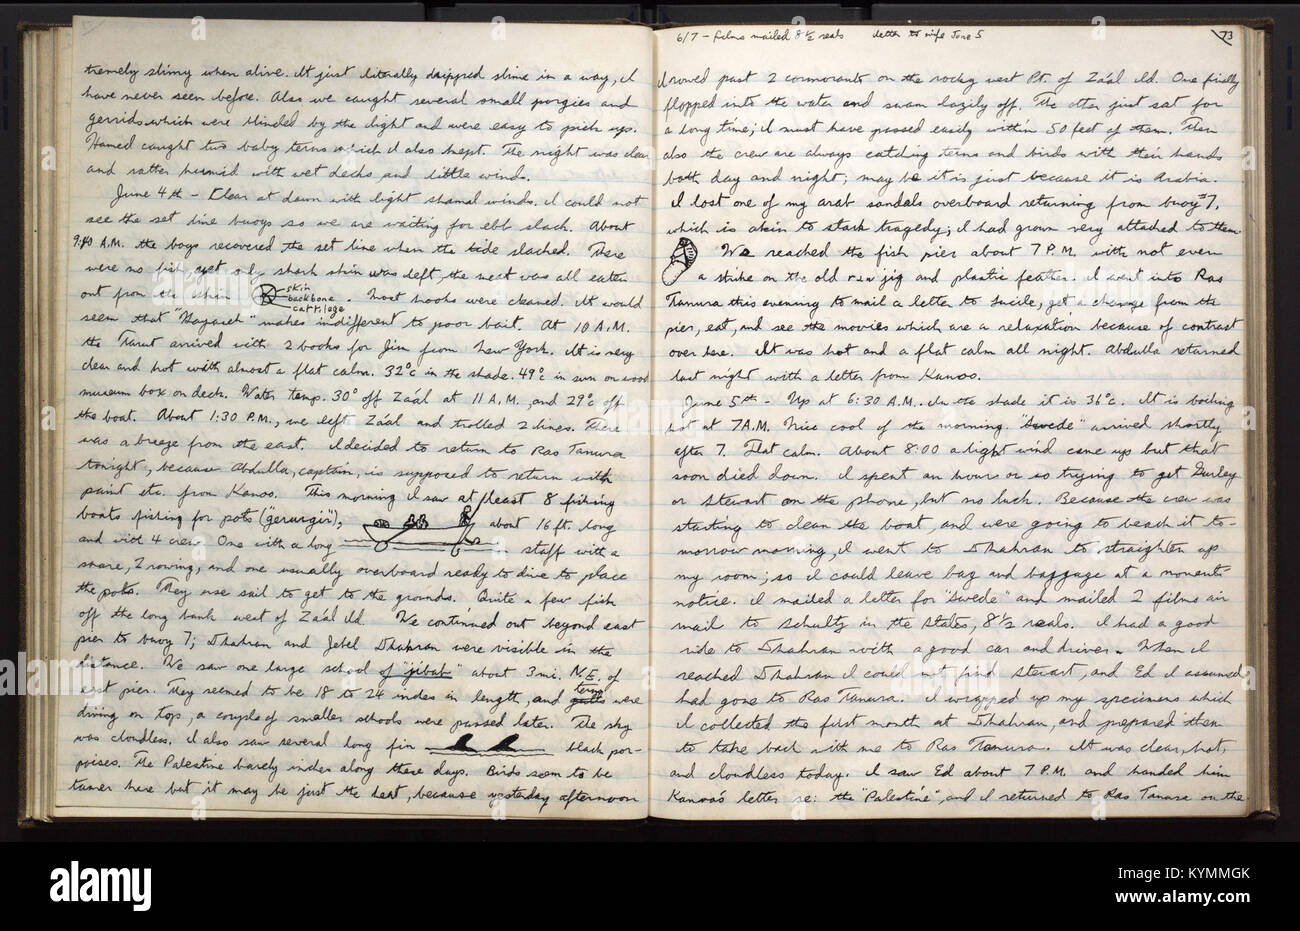 tremely slimy when alive. It just literally dripped slime in a way, I
have never seen before. Also we caught several small porgies and
gerrids which were blinded by the light and were easy to pick up.
Hamed caught two baby terns which I also kept. The night was clear
and rather humid with wet decks and little winds.
June 4th - Clear at dawn with light shamal winds. I could not
see the set line buoys so we are waiting for ebb slack. About
9:40 A.M. the boys recovered the set line when the tide slacked. There
were no fish yet only shark skin was left, the meat was all eaten
out from the skin
skin
backbone
cartilage
. Most hooks were cleaned. It would
seem that "Hagareh" makes indifferent to poor bait. At 10 A.M.
the Tarut arrived with 2 books for Jim from New York. It is very
clear and hot with almost a flat calm. 32°c in the shade. 49°c in sun on wood
museum box on deck. Water temp. 30° off Zaal at 11 A.M., and 29°c off
the boat. About 1:30 P.M., we left Zaal and trolled 2 lines. There
was a breeze from the east. I decided to return to Ras Tanura
tonight, because Abdulla, captain, is supposed to return with
paint etc. from Kanoo. This morning I saw at least 8 fishing
boats fishing for pots ("gerurgir"), about 16 ft. long
and with 4 crew. One with a long staff with a
snare, 2 rowing, and one usually overboard ready to dive to place
the pots. They use sail to get to the grounds. Quite a few fish
off the long bank west of Za'al Ild. We continued out beyond east
pier to buoy 7; Dhahran and Jebel Dhahran were visible in the
distance. We saw one large school of "jibab" about 3 mi. N.E. of
east pier. They seemed to be 18 to 24 inches in length, and gulls terns were
diving on top, a couple of smaller schools were passed later. The sky
was cloudless. I also saw several long fin black por-
poises. The Palestine barely inches along these days. Birds seem to be
tamer here but it may be just the heat, because yesterday afternoon
6/7 - films mailed 8 1/2 reals letter to wife June 5
73
I rowed past 2 cormorants on the rocky west Pt. of Zaal Ild. One finally
flopped into the water and swam lazily off. The other just sat for
a long time; I must have passed easily within 50 feet of them. Then
also the crew are always catching terns and birds with their hands
both day and night; maybe it is just because it is Arabia.
I lost one of my arab sandals overboard returning from buoy #7,
which is akin to stark tragedy; I had grown very attached to them.
We reached the fish pier about 7 P.M. with not even
a strike on the old new jig and plastic feather. I went into Ras
Tanura this evening to mail a letter to Lucile, get a change from the
pier, eat, and see the movies which are a relaxation because of contrast
over here. It was hot and a flat calm all night. Abdulla returned
last night with a letter from Kanoo.
June 5th - Up at 6:30 A.M. In the shade it is 36°c. It is boiling
hot at 7 A.M. Nice cool of the morning. "Swede" arrived shortly
after 7. Flat calm. About 8:00 a light wind came up but that
soon died down. I spent an hour or so trying to get Gurley
or Stewart on the phone, but no luck. Because the crew was
starting to clean the boat, and were going to beach it to-
morrow morning, I went to Dhahran to straighten up
my room; so I could leave bag and baggage at a moment's
notice. I mailed a letter for "Swede" and mailed 2 films air
mail to Schultz in the States, 8 1/2 reals. I had a good
ride to Dhahran with a good car and driver. When I
reached Dhahran I could not find Stewart, and Ed I assumed
had gone to Ras Tanura. I wrapped up my specimens which
I collected the first month at Dhahran, and prepared them
to take back with me to Ras Tanura. It was clear, hot,
and cloudless today. I saw Ed about 7 P.M. and handed him
Kanoo's letter re: the "Palestine", and I returned to Ras Tanura on the
alamy
Image ID: KYMMGK
www.alamy.com